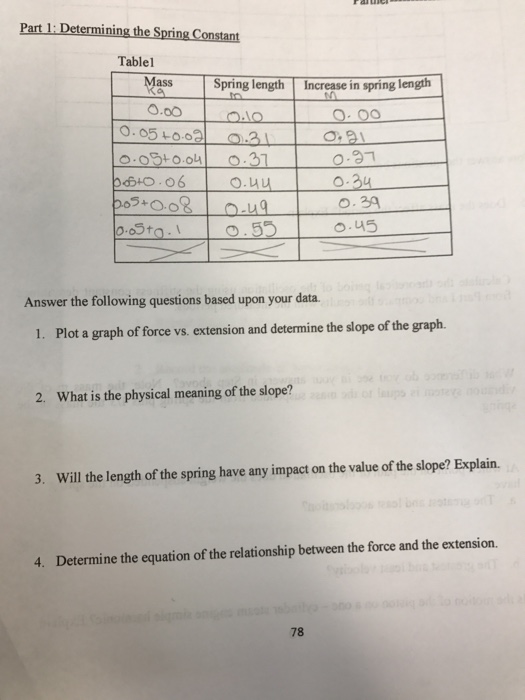 Part 1: Determining the Spring Constant
Table1
Mass Spring length Increase in spring length
Kg m M
0.00 0.10 0.00
0.05+0.02 0.31 0.21
0.05+0.04 0.37 0.27
0.05+0.06 0.44 0.34
0.05+0.08 0.49 0.39
0.05+0.1 0.55 0.45
Answer the following questions based upon your data.
1. Plot a graph of force vs. extension and determine the slope of the graph.
2. What is the physical meaning of the slope?
3. Will the length of the spring have any impact on the value of the slope? Explain.
4. Determine the equation of the relationship between the force and the extension.
78